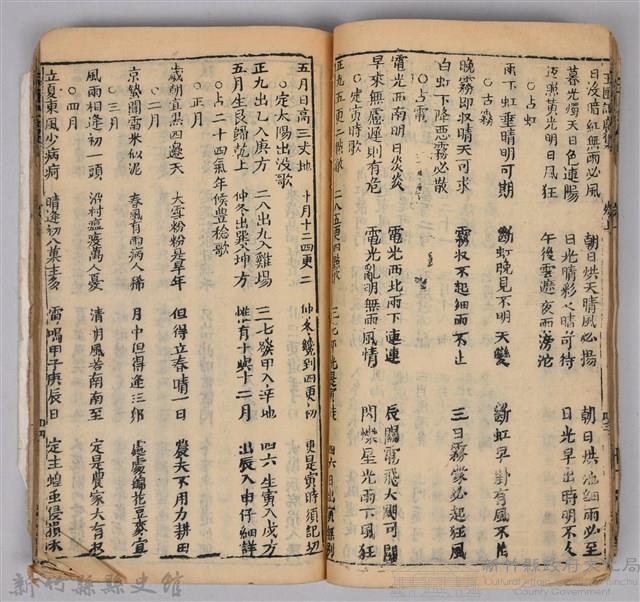 日沒暗紅無雨必風 朝日烘天晴風必揚 朝日烘地細雨必至
暮光燭天日色連 日光晴彩久晴可待 日光早出時明不久
返照黃光明日風狂 午後雲遮夜雨滂沱
○占虹
雨下虹垂晴明可期 斷虹晚見不明天變 斷虹早掛有風不怕
○古霧
晚霧即収晴天可求 霧収不起細雨不止 三日霧濛必起狂風
白虹下降惡霧必散
○占電
電光西南明日炎炎 電光西北雨下連連 辰闕電飛大颶可期
早來無慮遲則有危 電光亂明無雨風情 閃爍星光雨下風狂
○定寅時歌
正九五更二點徹 二八五更四點歇 三七平光是寅時 四六日出寅無別
五月日高三丈地 十月十二四更二 仲冬纔到四更初 更是寅時須記切
○定太陽出没歌
正九出乙入庚方 二八出兔入雞場 三七發甲入辛地 四六生寅入戌方
五月生艮歸乾上 仲冬出巽入坤方 惟有十與十二月 出辰入申仔細詳
○占二十四氣年候豊稔歌
○正月
歲朝宜黑四邊天 大雪粉粉是旱年 但得立春晴一日 農夫不用力耕田
○二月
京蟄聞雷米似泥 春風有雨病人稀 月中但得逢三卯 處處綿花豆麥宜
○三月
風雨相逢初一頭 沿村瘟疫萬人憂 清明風若南南至 定是農家大有收
○四月
立夏東風少病疴 晴逢初八菓生多 雷鳴甲子庚辰日 定主蝗虫侵損禾
新竹縣縣史館
新竹縣政府文化局
County Government